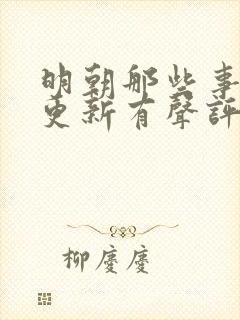 明朝那些事
更新有聲評
柳慶慶